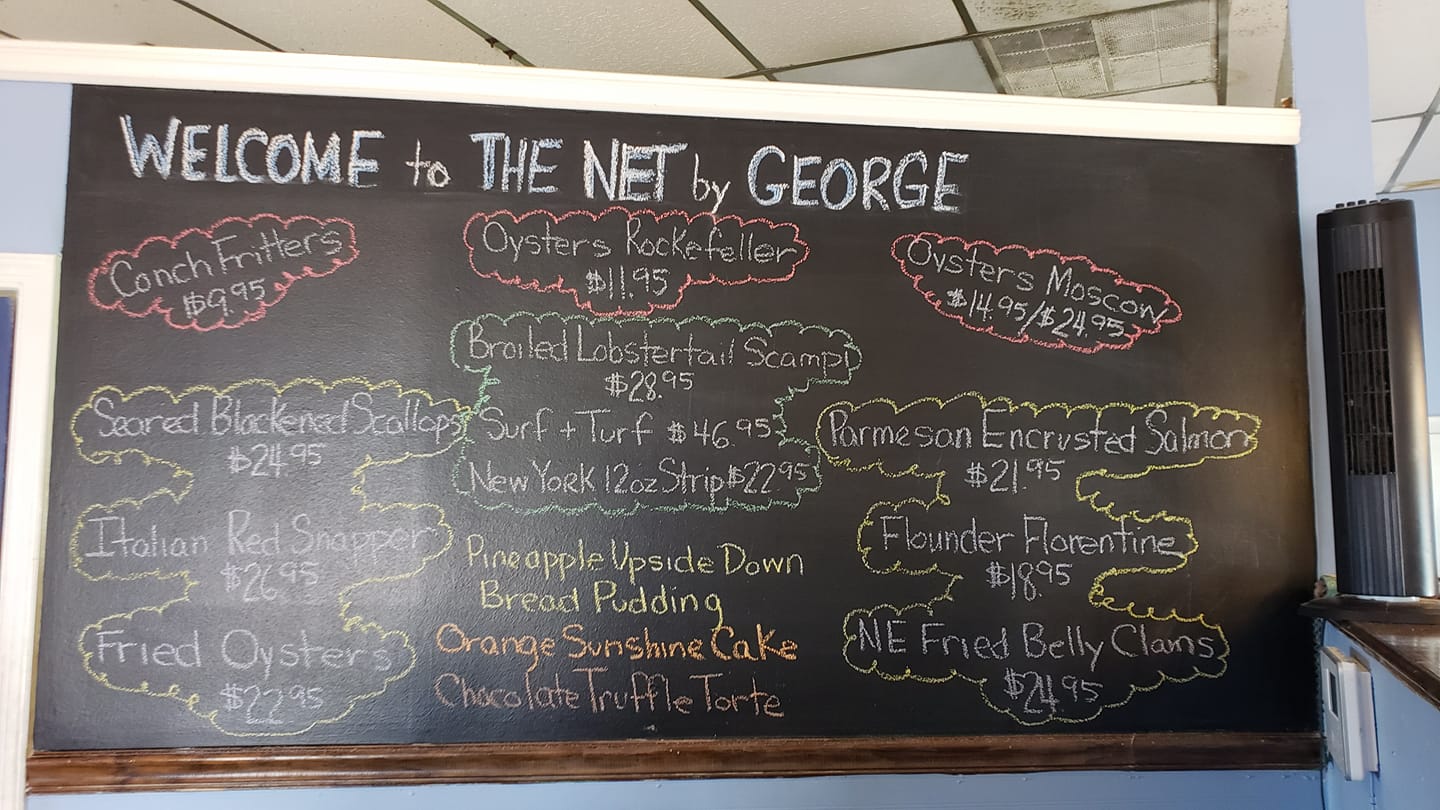 WELCOME to THE NET by GEORGE
Conch Fritters
$9.95
Oysters Rockefeller
$11.95
Oysters Moscow
$14.95/$24.95
Broiled Lobstertail Scampi
$28.95
Surf + Turf $46.95
New York 12oz Strip $22.95
Seared Blackened Scallops
$24.95
Italian Red Snapper
$26.95
Fried Oysters
$22.95
Parmesan Encrusted Salmon
$21.95
Flounder Florentine
$18.95
NE Fried Belly Clams
$24.95
Pineapple Upside Down
Bread Pudding
Orange Sunshine Cake
Chocolate Truffle Torte